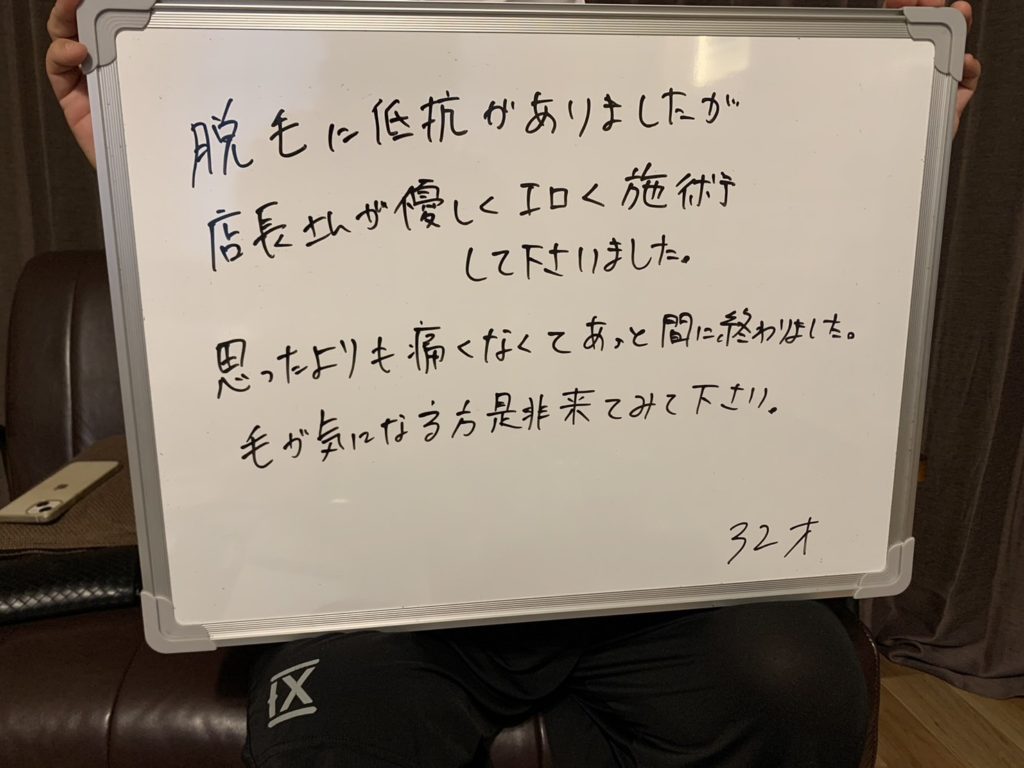 脱毛に低抗がありましたが
店長さんが優しくエロく施術
して下さいました。
思ったよりも痛くなくてあっと間に終わりました。
毛が気になる方是非来てみて下さい。
32才
IX